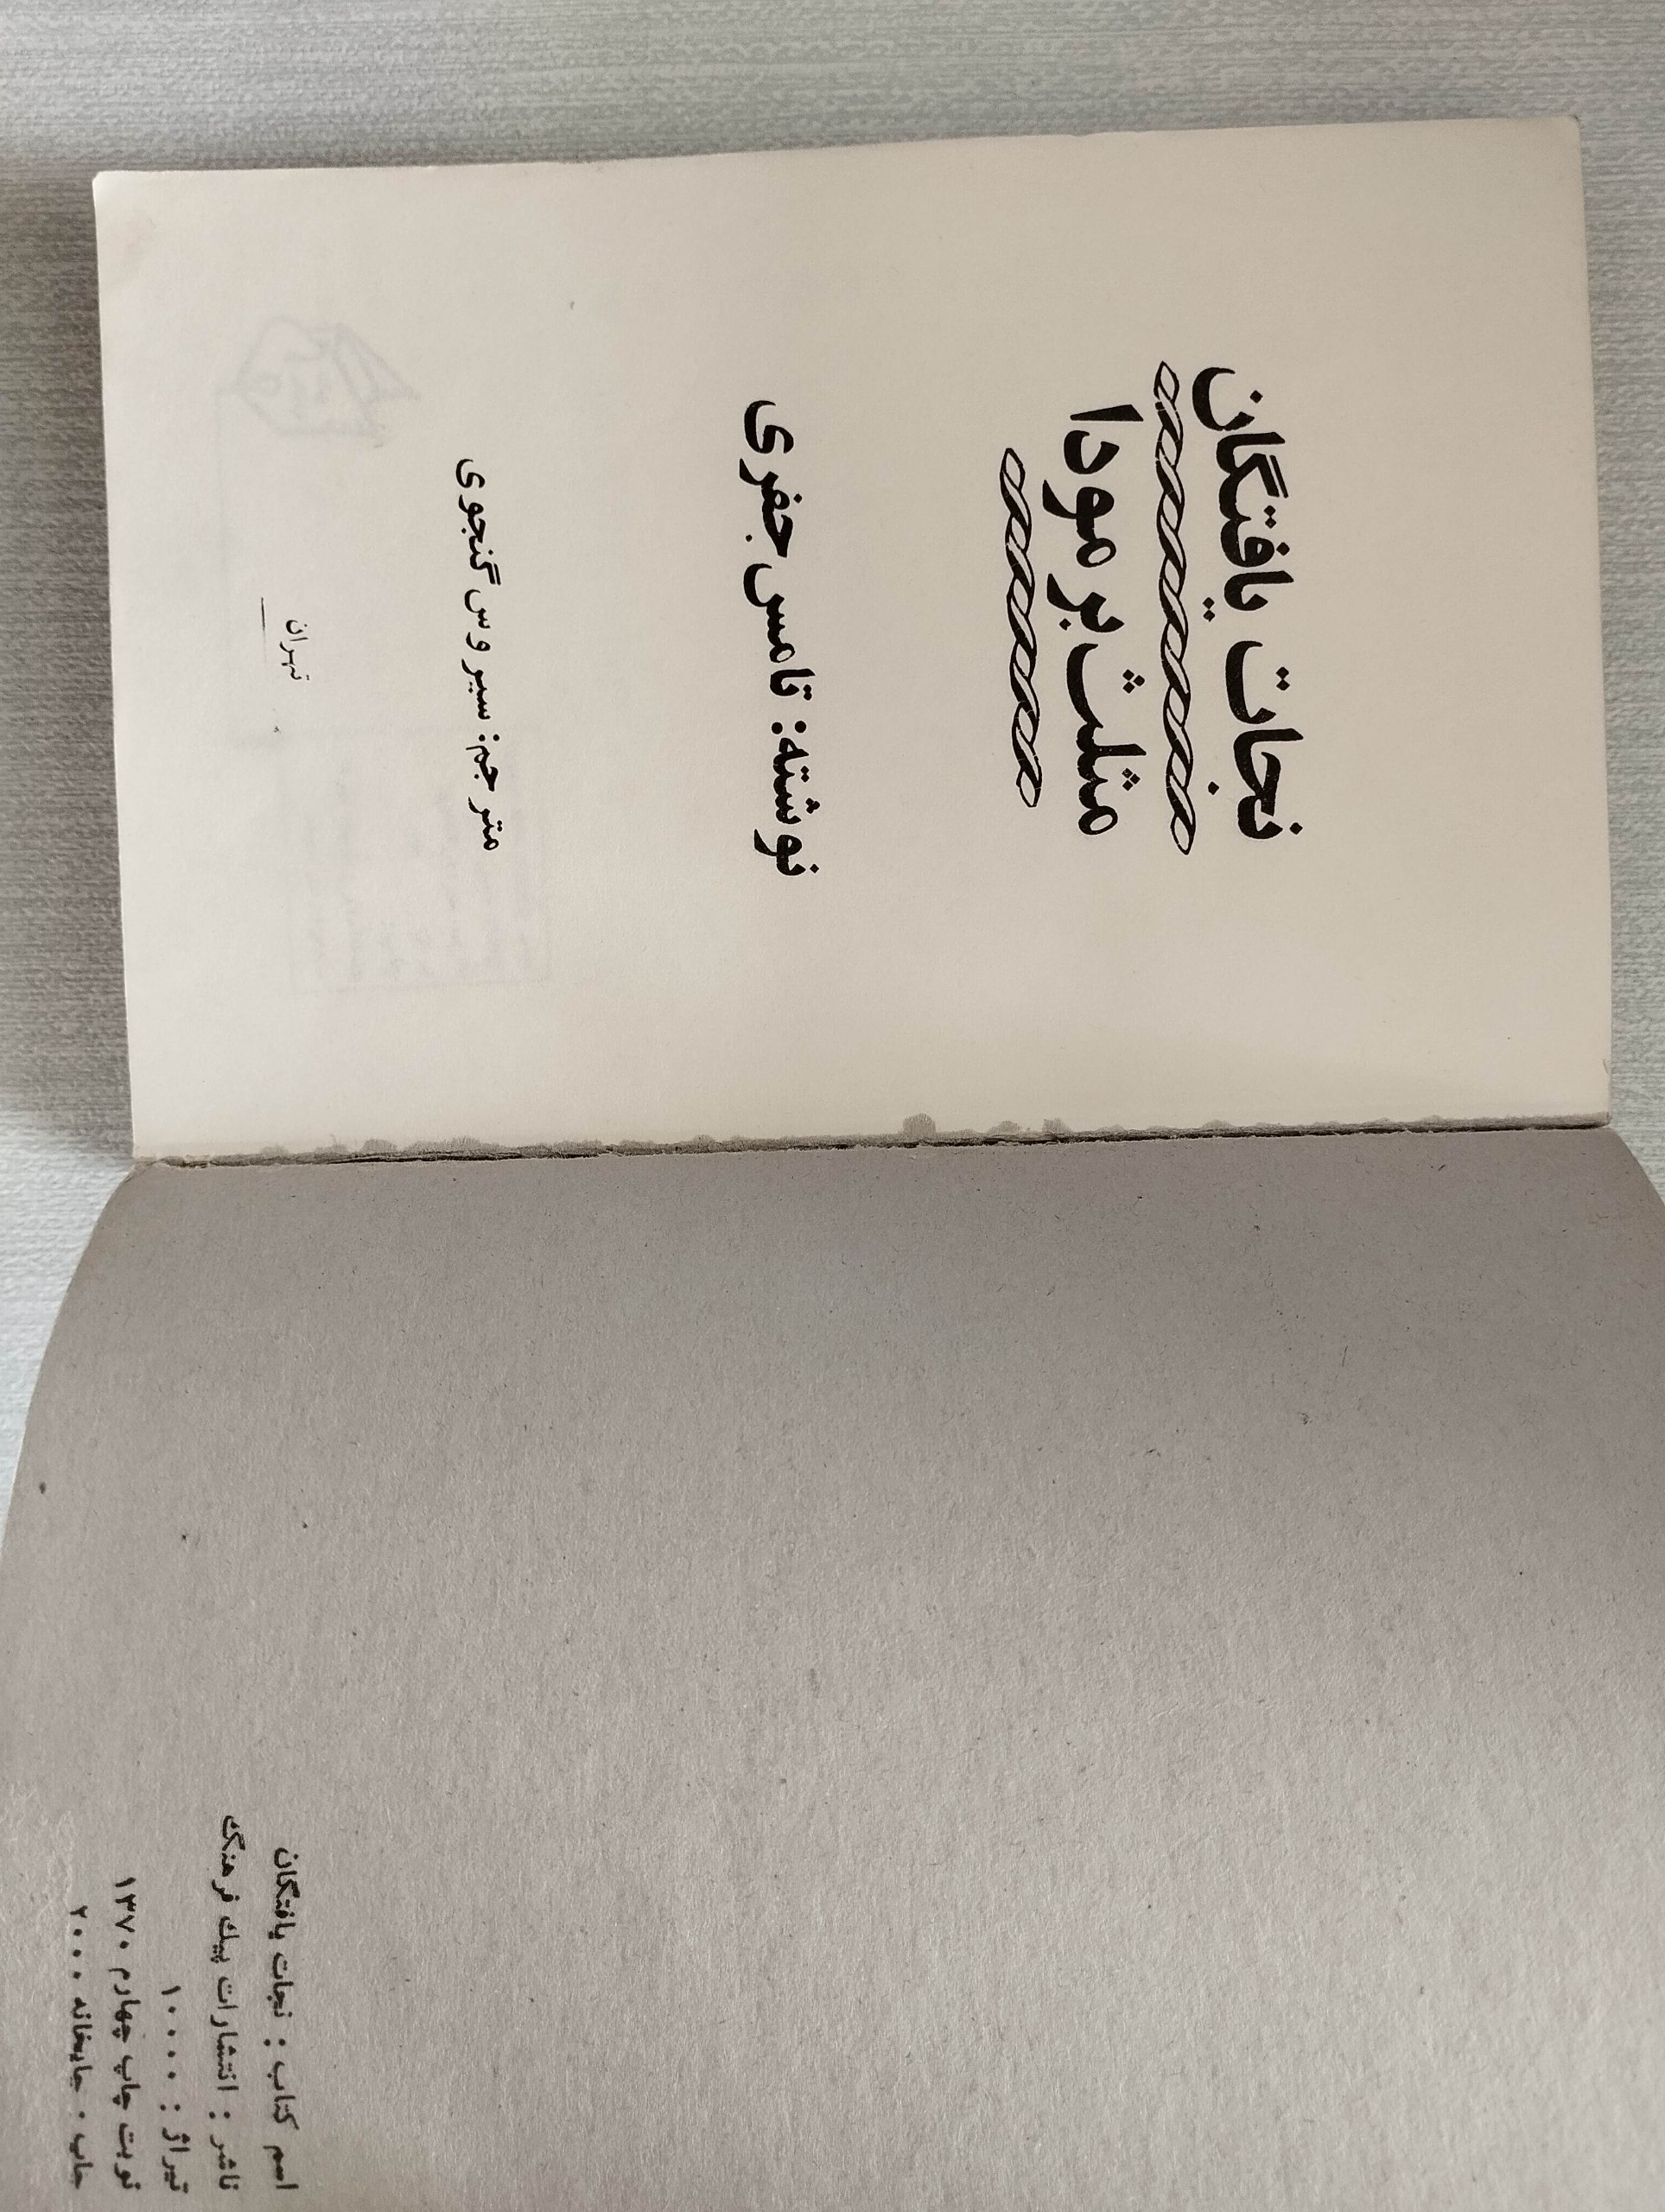 نجات یافتگان
مثلث برمودا
نوشته: تامس جفری
مترجم: سیروس گنجوی
تهران
اسم کتاب : نجات یافتگان
ناشر : انتشارات پیك فرهنگ
تیراژ : ۱۰۰۰۰
نوبت چاپ چهارم ۱۳۷۰
چاپ : چاپخانه ۲۰۰۰